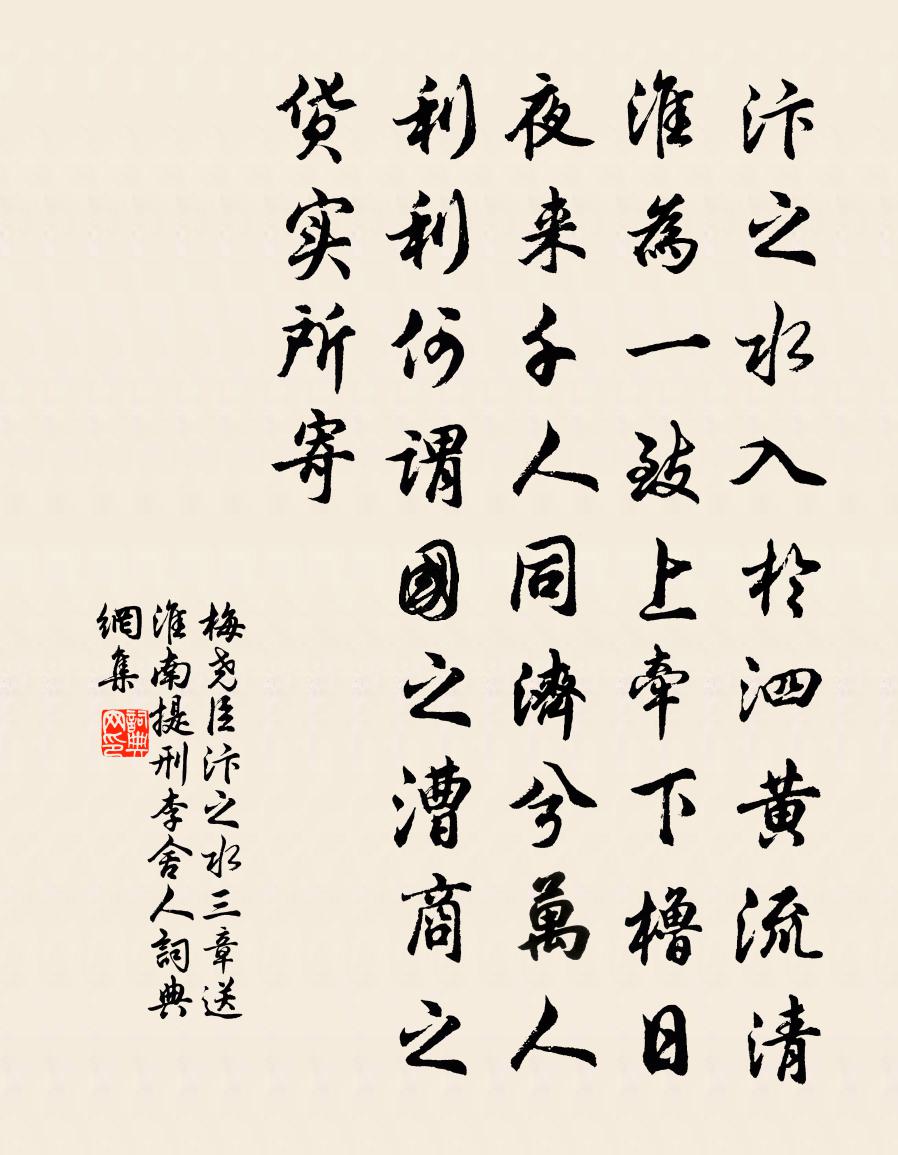 汴之水入於泗黄流清
淮為一致上牽下櫓日
夜来千人同濟兮萬人
利利何謂國之漕商之
货实所寄
梅尧臣汴之水三章送
淮南提刑李舍人詞典
網集
詞典
网印